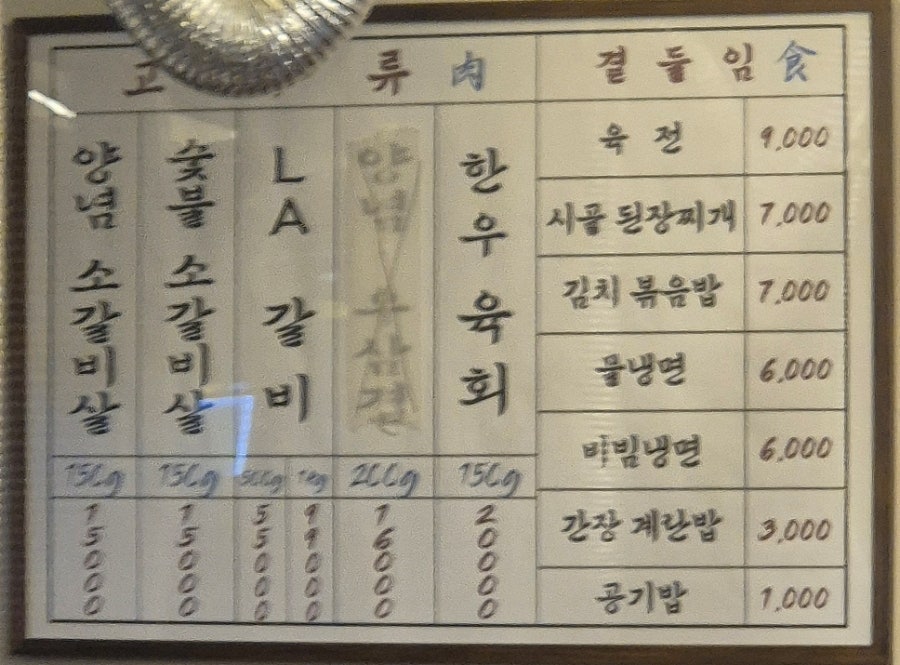 고 류 肉
양념 소갈비살 150g 15000
숯불 소갈비살 150g 15000
LA 갈비 500g 55000 1kg 99000
양념 우삼겹 200g 16000
한우 육회 150g 20000
곁들임 食
육전 9,000
시골 된장찌개 7,000
김치 볶음밥 7,000
물냉면 6,000
비빔냉면 6,000
간장 계란밥 3,000
공기밥 1,000